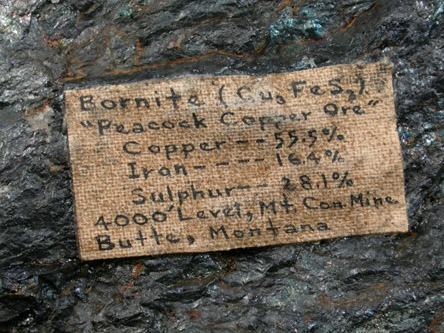 Bornite (Cu3FeS3)
"Peacock Copper Ore"
Copper -- 55.5%
Iron ---- 16.4%
Sulphur -- 28.1%
4000' Level, Mt. Con. Mine
Butte, Montana